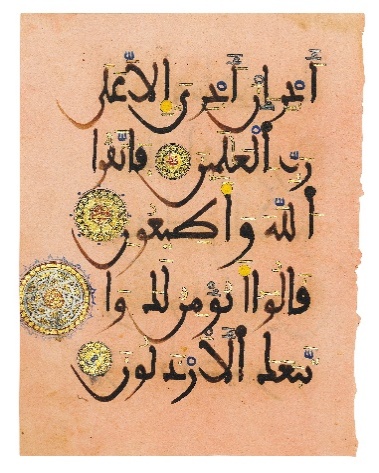 أجر إن أجري إلا على
رب العلمين فاتقوا
الله وأطيعون
قالوا أنؤمن لك وا
تبعك الأرذلون